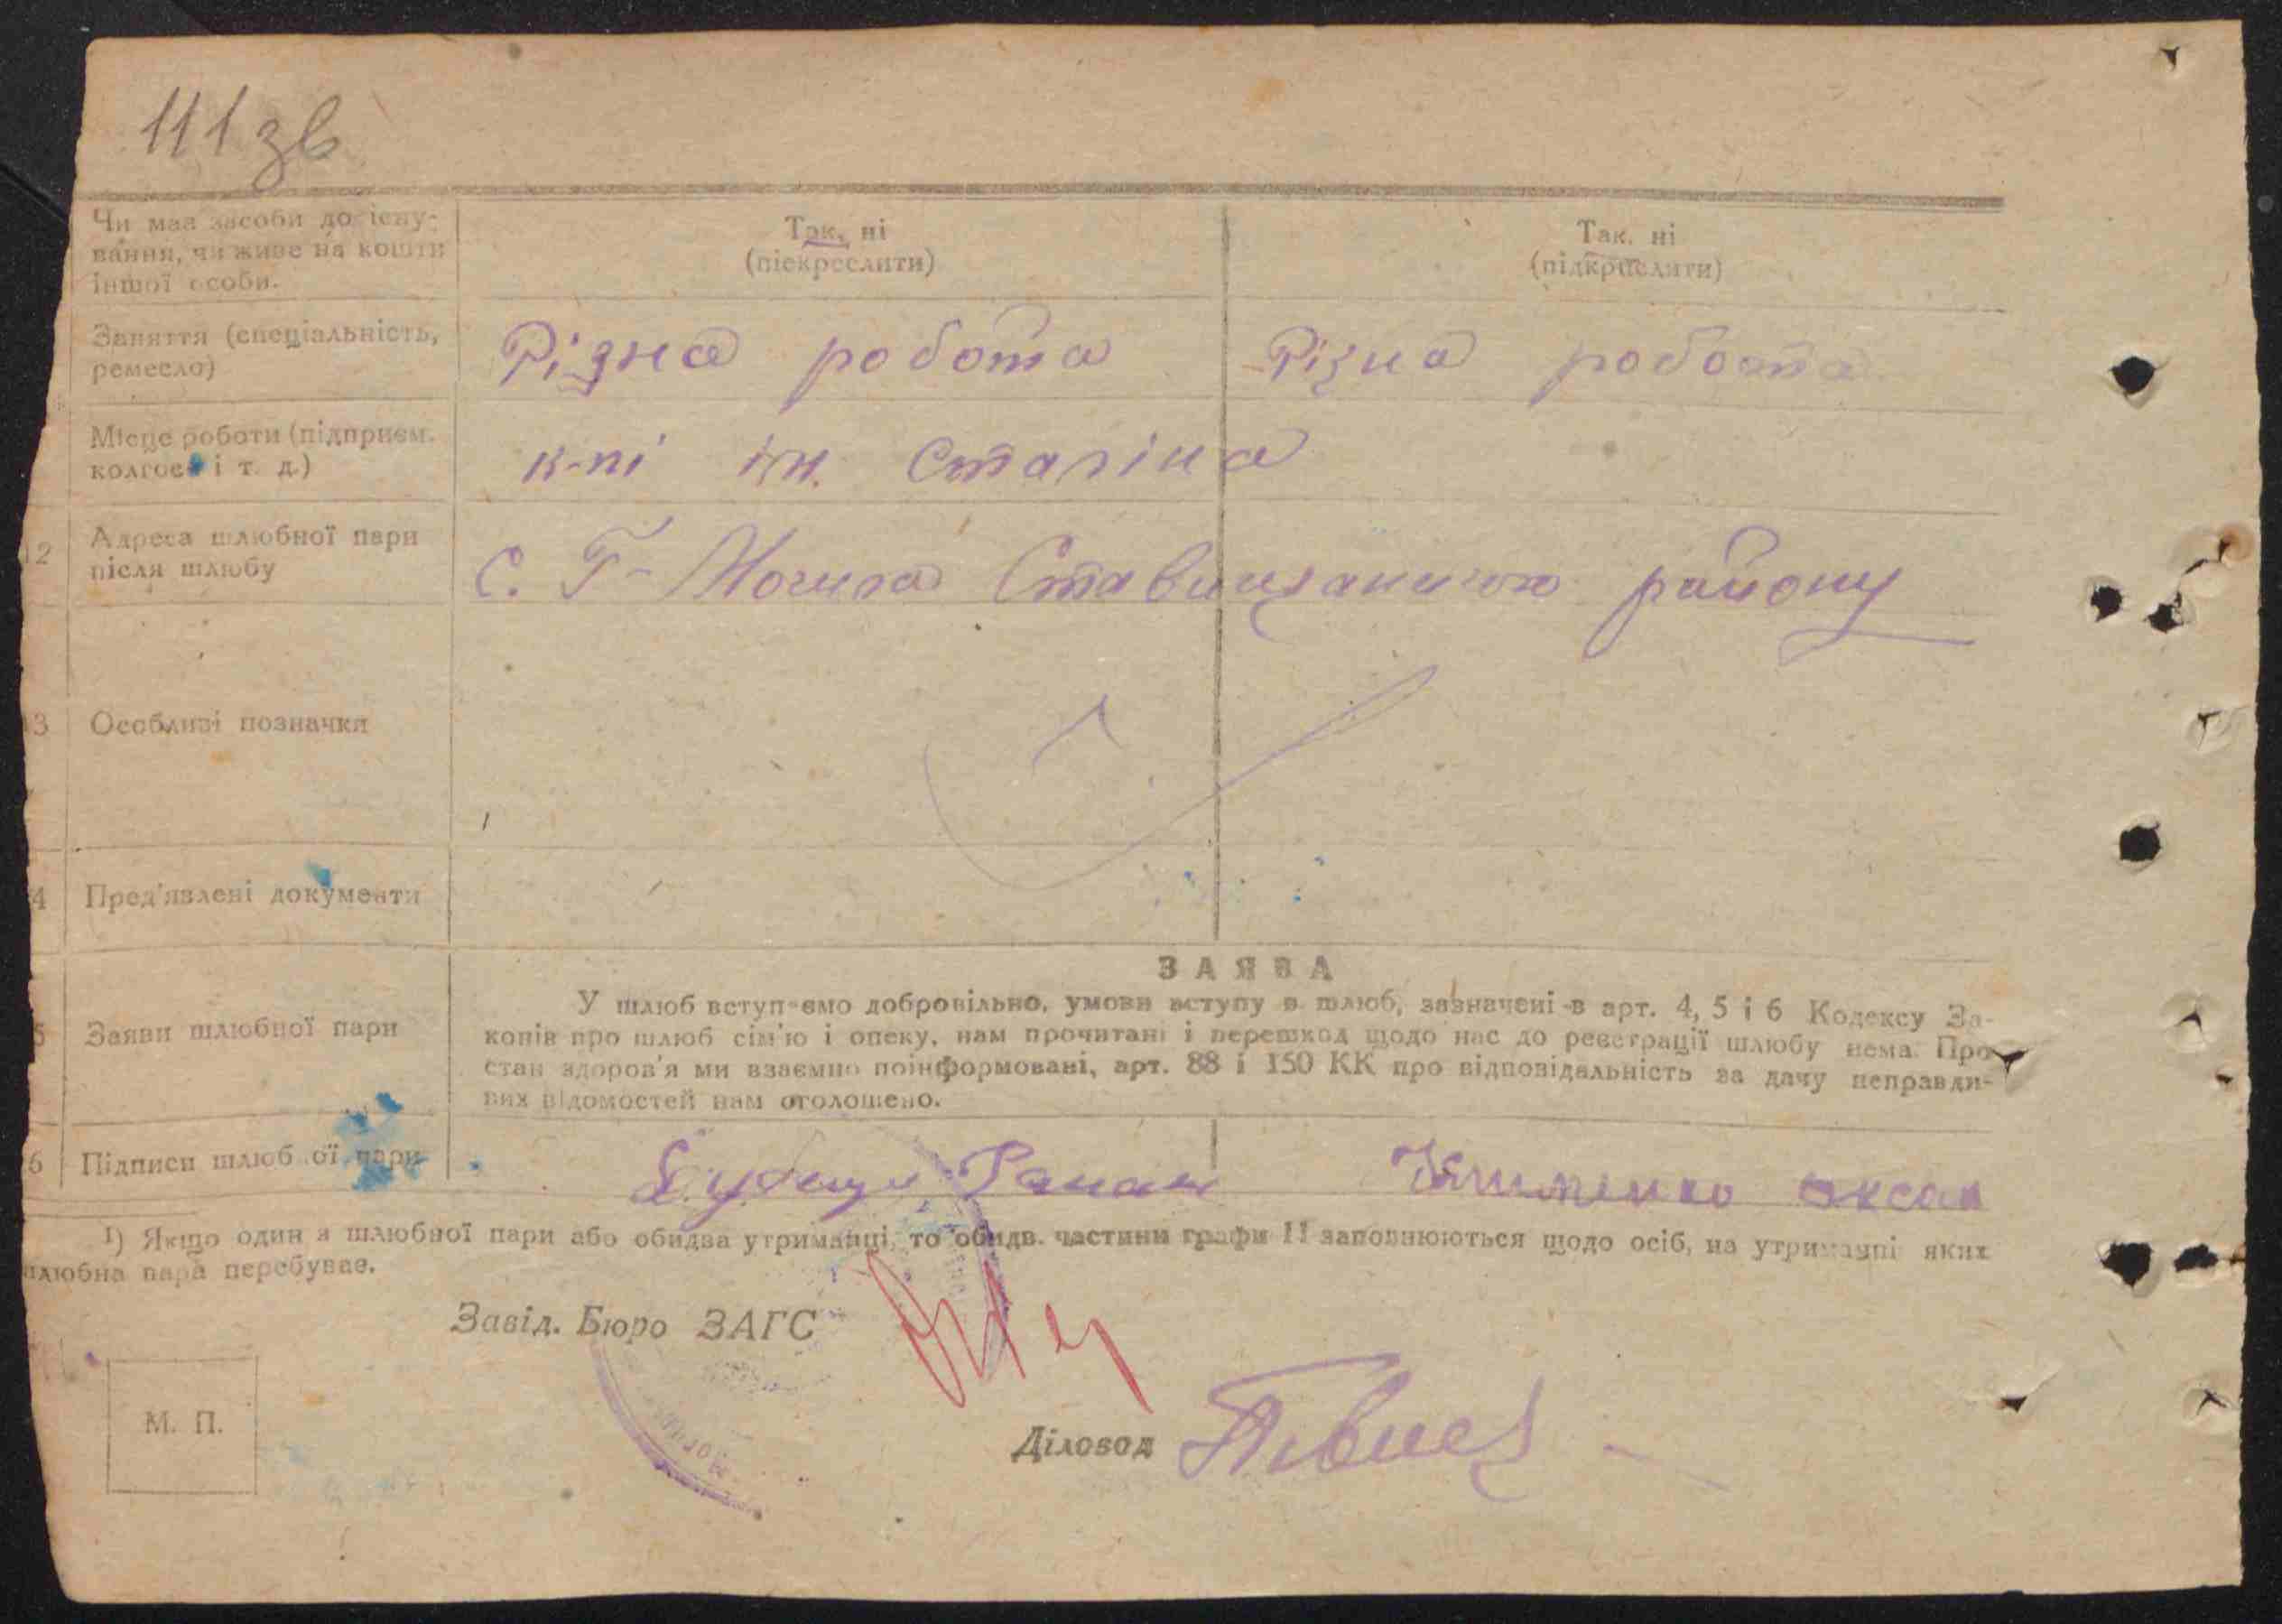 111зв
Чи має засоби до існу-
вання, чи живе на кошти
іншої особи.
Так, ні
(піекреслити)
Так, ні
(підкреслити)
Заняття (спеціальність,
ремесло)
Різна робота
Різна робота
Місце роботи (підприєм.
колгосп і т. д.)
к-пі ім. Сталіна
12
Адреса шлюбної пари
після шлюбу
с. Г-Могила Ставищанського району
3
Особливі позначки
4
Пред'явлені документи
5
Заяви шлюбної пари
ЗАЯВА
У шлюб вступаємо добровільно, умови вступу в шлюб, зазначені в арт. 4, 5 і 6 Кодексу За-
конів про шлюб сім'ю і опеку, нам прочитані і перешкод щодо нас до реєстрації шлюбу нема. Про
стан здоров'я ми взаємно поінформовані, арт. 88 і 150 КК про відповідальність за дачу неправди-
вих відомостей нам оголошено.
6
Підписи шлюбної пари
Оксан
1) Якщо один з шлюбної пари або обидва утриманці, то обидв. частини графи 11 заповнюються щодо осіб, на утриманні яких
шлюбна пара перебуває.
Завід. Бюро ЗАГС
М. П.
Діловод Півнез